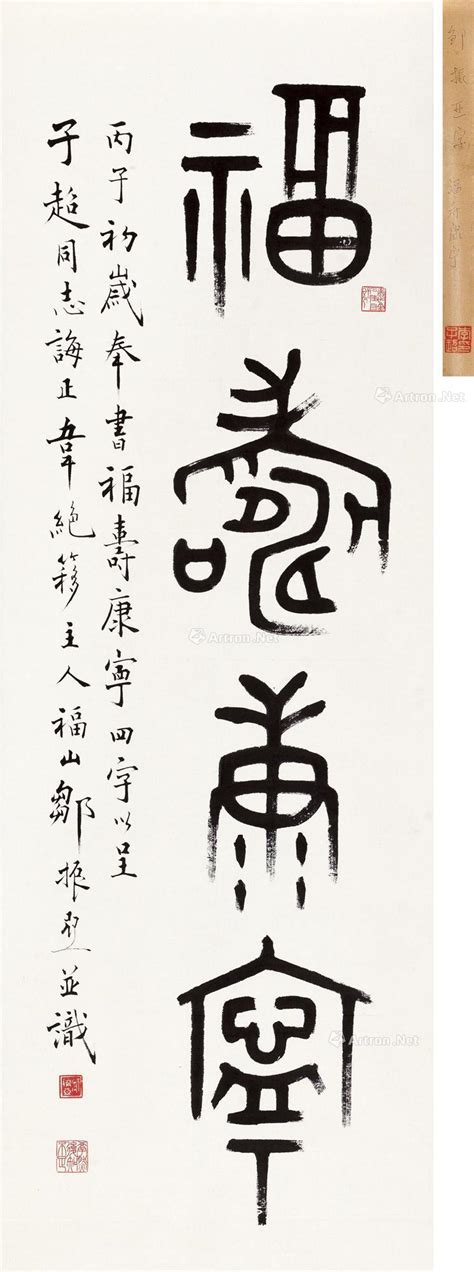 福壽康寧
丙子初歲奉書福壽康寧四字以呈
子超同志誨正韋絕簃主人福山鄒振亞並識
Artron.Net
Artron.Net
Artron.Net